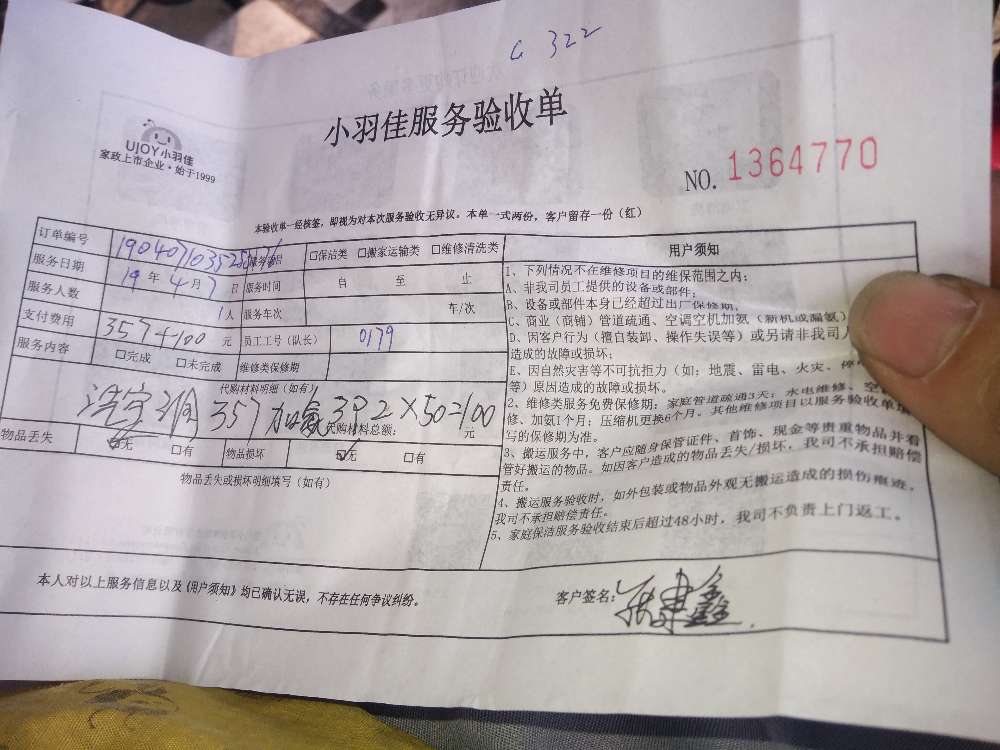 C 322
小羽佳服务验收单
UJOY小羽佳
家政上市企业·始于1999
NO. 1364770
本验收单一经核签，即视为对本次服务验收无异议。本单一式两份，客户留存一份（红）
订单编号 □保洁类 □搬家运输类 □维修清洗类
服务日期 19 年 4 月 7 日 服务时间 自 至 止
服务人数 1人 服务车次 车/次
支付费用 357+100 元 员工工号（队长） 0179
服务内容 □完成 □未完成 维修类保修期
代购材料明细（如有）
357 加氟 2×50=100
代购材料总额： 元
物品丢失 ☑无 □有 物品损坏 ☑无 □有
物品丢失或损坏明细填写（如有）
用户须知
1、下列情况不在维修项目的维保范围之内：
A、非我司员工提供的设备或部件；
B、设备或部件本身已经超过出厂保修期；
C、商业（商铺）管道疏通、空调空机加氨（新机或漏氨）
D、因客户行为（擅自装卸、操作失误等）或另请非我司人
造成的故障或损坏；
E、因自然灾害等不可抗拒力（如：地震、雷电、火灾、停
等）原因造成的故障或损坏。
2、维修类服务免费保修期：家庭管道疏通3天；水电维修、空
修、加氨1个月；压缩机更换6个月。其他维修项目以服务验收单
写的保修期为准。
3、搬运服务中，客户应随身保管证件、首饰、现金等贵重物品并看
管好搬运的物品。如因客户造成的物品丢失/损坏，我司不承担赔偿
责任。
4、搬运服务验收时，如外包装或物品外观无搬运造成的损伤痕迹，
我司不承担赔偿责任。
5、家庭保洁服务验收结束后超过48小时，我司不负责上门返工。
本人对以上服务信息以及《用户须知》均已确认无误，不存在任何争议纠纷。
客户签名：张建鑫